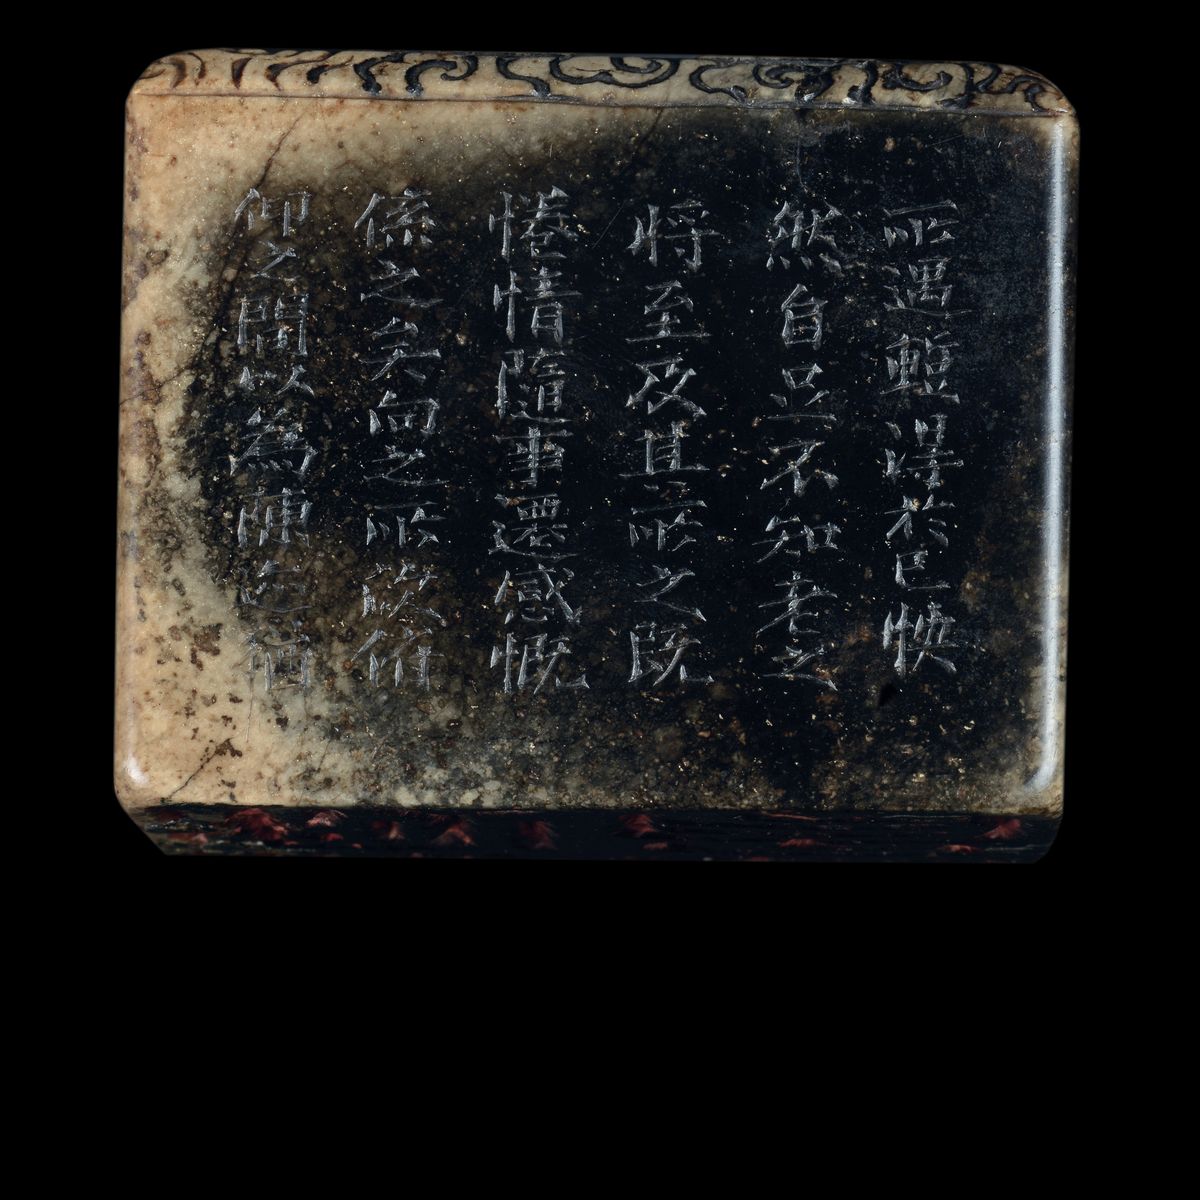 所遇得於己怏
然自足不知老之
將至及其所之既
惓情隨事遷感慨
係之矣向之所俯
仰之間以為陳迹猶